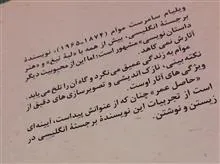 ویلیام سامرست موام (۱۸۷۴-۱۹۶۵)، نویسندهٔ
برجستهٔ انگلیسی، بیش از همه با «لبهٔ تیغ» و «هنر
داستان‌نویسی» مشهور است؛ اما این از محبوبیت دیگر
آثارش نمی‌کاهد.
موام به زندگی عمیق می‌نگرد و گاه آن را تلخ می‌یابد.
نکته‌بینی، نازک‌اندیشی و تصویرسازی‌های دقیق از
ویژگی‌های آثار اوست.
«حاصل عمر» چنان که از عنوانش پیداست، آیینه‌ای
است از تجربیات این نویسندهٔ برجستهٔ انگلیسی در
زیستن و نوشتن.